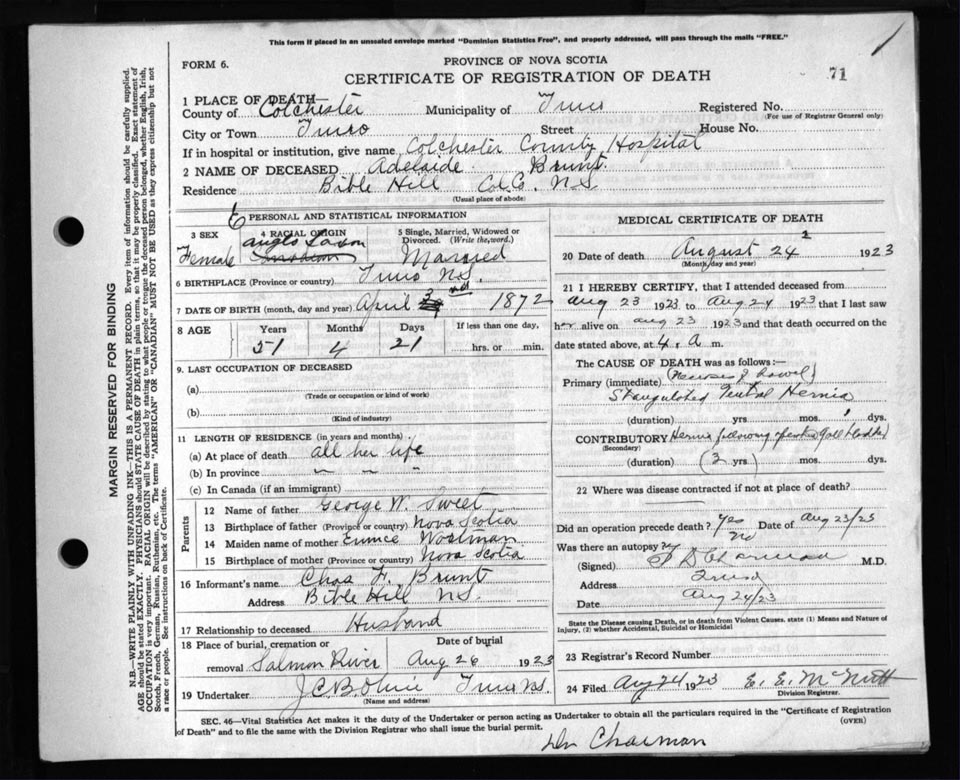 This form if placed in an unsealed envelope marked "Dominion Statistics Free", and properly addressed, will pass through the mails "FREE."
FORM 6.
PROVINCE OF NOVA SCOTIA
71
CERTIFICATE OF REGISTRATION OF DEATH
1 PLACE OF DEATH—
County of Colchester Municipality of Truro Registered No.
(For use of Registrar General only)
City or Town Truro Street House No.
If in hospital or institution, give name Colchester County Hospital
2 NAME OF DECEASED Adelaide Brunt.
Residence Bible Hill Col. Co. N.S.
(Usual place of abode)
PERSONAL AND STATISTICAL INFORMATION
3 SEX 4 RACIAL ORIGIN 5 Single, Married, Widowed or Divorced. (Write the word.)
Female anglo Saxon Married
6 BIRTHPLACE (Province or country) Truro N.S.
7 DATE OF BIRTH (month, day and year) April 3 1872
8 AGE Years Months Days If less than one day,
51 4 21 hrs. or min.
9. LAST OCCUPATION OF DECEASED
(a)
(Trade or occupation or kind of work)
(b)
(Kind of industry)
11 LENGTH OF RESIDENCE (in years and months)
(a) At place of death all her life
(b) In province " " "
(c) In Canada (if an immigrant)
Parents
12 Name of father George W. Sweet
13 Birthplace of father (Province or country) Nova Scotia
14 Maiden name of mother Eunice Workman
15 Birthplace of mother (Province or country) Nova Scotia
16 Informant's name Chas F. Brunt
Address Bible Hill N.S.
17 Relationship to deceased Husband
18 Place of burial, cremation or removal Salmon River Date of burial Aug 26 1923
19 Undertaker Truro N.S.
(Name and address)
MEDICAL CERTIFICATE OF DEATH
20 Date of death August 24 1923
(Month, day and year)
21 I HEREBY CERTIFY, that I attended deceased from
Aug 23 1923 to Aug 24 1923 that I last saw
her alive on Aug 23 1923 and that death occurred on
date stated above, at 4. a. m.
The CAUSE OF DEATH was as follows:—
Primary (immediate) Strangulated Ventral Hernia
(duration) yrs mos. 1 dys.
CONTRIBUTORY Hernia following Gall bladder
(Secondary)
(duration) (3 yrs) mos. dys.
22 Where was disease contracted if not at place of death?
Did an operation precede death? Yes Date of Aug 23/23
Was there an autopsy? No
(Signed) M.D.
Address Truro
Date Aug 24/23
State the Disease causing Death, or in death from Violent Causes, state (1) Means and Nature of Injury, (2) whether Accidental, Suicidal or Homicidal
23 Registrar's Record Number
24 Filed Aug 24 1923 E. E. McNutt
Division Registrar.
SEC. 46—Vital Statistics Act makes it the duty of the Undertaker or person acting as Undertaker to obtain all the particulars required in the "Certificate of Registration
of Death" and to file the same with the Division Registrar who shall issue the burial permit.
(OVER)
MARGIN RESERVED FOR BINDING
N.B.—WRITE PLAINLY WITH UNFADING INK—THIS IS A PERMANENT RECORD. Every item of information should be carefully supplied.
AGE should be stated EXACTLY. PHYSICIANS should STATE CAUSE OF DEATH in plain terms, so that it may be properly classified. Exact statement of
OCCUPATION is very important. RACIAL ORIGIN will be described by stating to what people or tongue the deceased person belonged, whether English, Irish,
Scotch, French, German, Russian, Ruthenian, etc. The terms "AMERICAN" or "CANADIAN" MUST NOT BE USED as they express citizenship but not
a race or people. See instructions on back of Certificate.